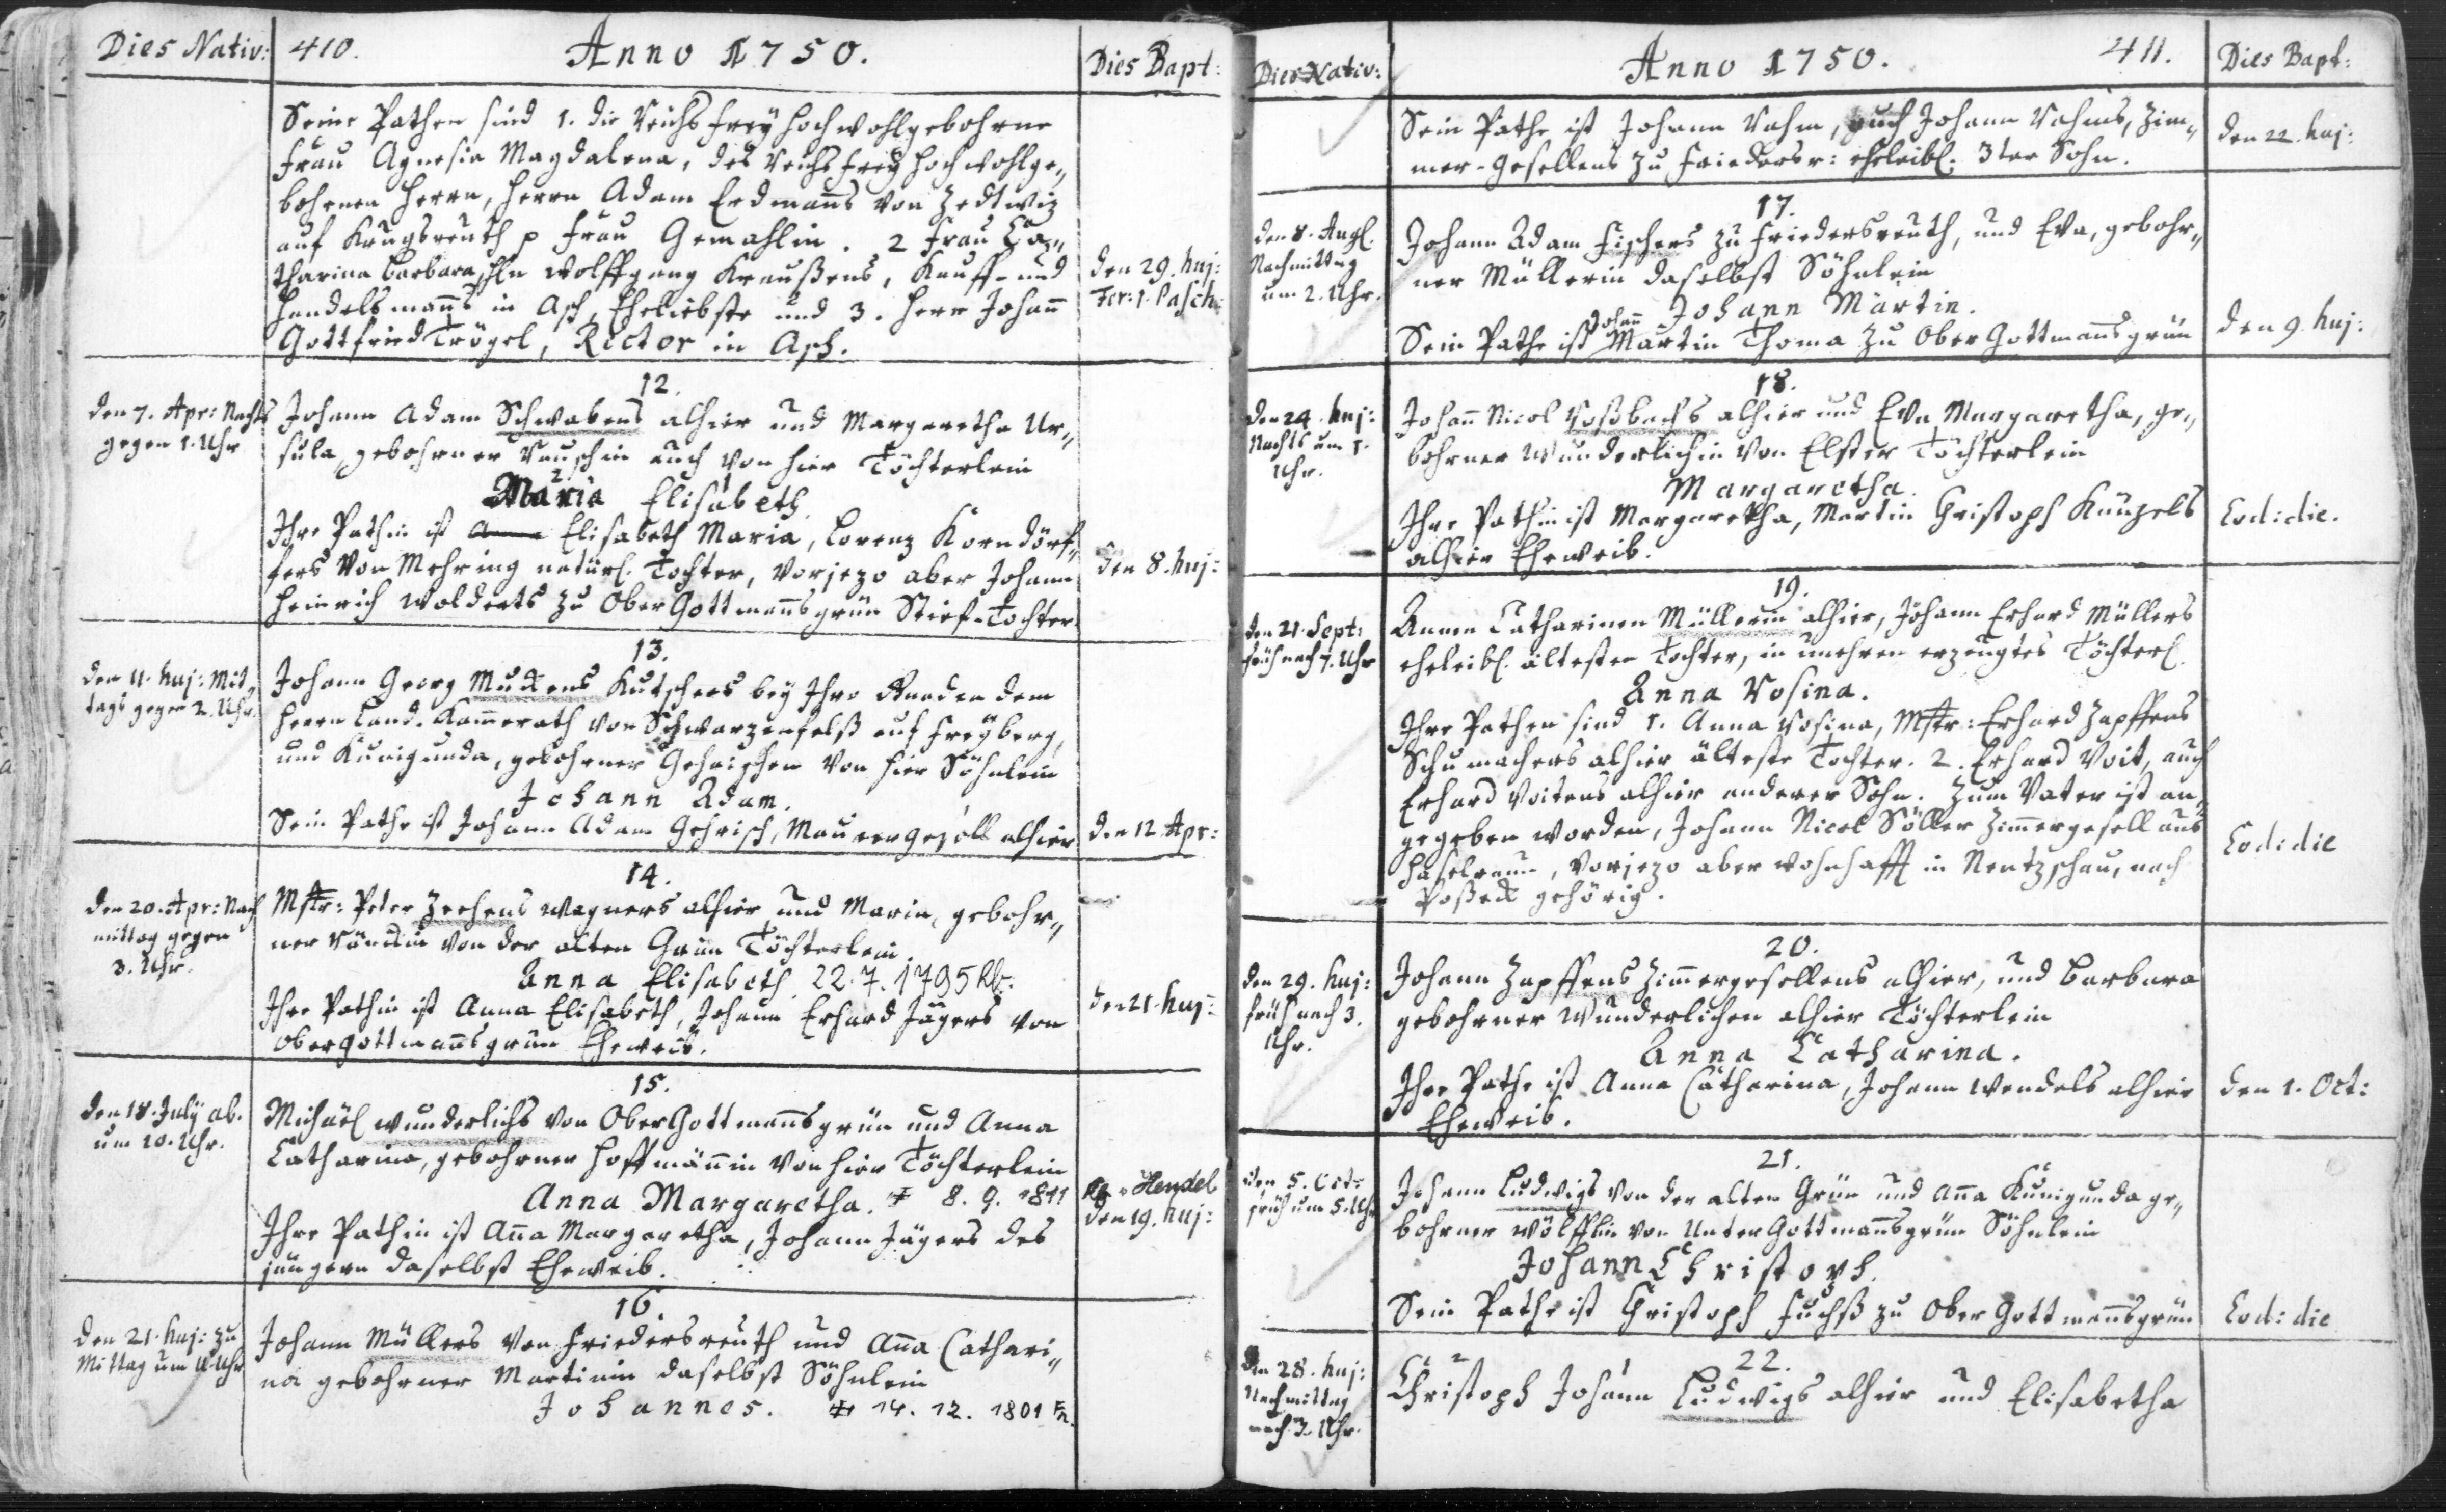 Dies Nativ:
410.
Anno 1750.
Dies Bapt:
Seine Pathen sind 1. die Reichs frey hochwohlgebohrne
Frau Agnesia Magdalena, des Reichs frey hochwohlge„
bohrnen Herrn, Herrn Adam Erdmanns von Zedtwiz
auf Krugsreuth p Frau Gemahlin. 2 Frau Ca„
tharina Barbara, Wolffgang Kraußens, Kauff- und
Handelsmanns in Asch, Eheliebste und 3. Herr Johann
Gottfried Trögel, Rector in Asch.
den 29. huj:
Fer: 1. Pasch:
12.
den 7. Apr: Nachts
gegen 1. Uhr
Johann Adam Schwabens alhier und Margaretha Ur„
sula, gebohrner Rauschin auch von hier Töchterlein
2 1
Maria Elisabeth
Ihre Pathin ist Elisabeth Maria, Lorenz Korndörf„
fers von Mehring natürl. Tochter, vorjezo aber Johann
Heinrich Wolderts zu Ober Gottmannsgrün Stief-Tochter.
den 8. huj:
13.
den 11. huj: Mit„
tags gegen 2. Uhr.
Johann Georg Mudens Kutschers bey Ihro Gnaden dem
Herrn Land. Kammerath von Schwarzenfelß auf Freyberg,
und Kunigunda, gebohrner Gehrischen von hier Söhnlein
Johann Adam.
Sein Pathe ist Johann Adam Gehrisch, Maurergesell alhier
den 12. Apr:
14.
den 20. Apr: Nach
mittag gegen
3. Uhr.
Mstr: Peter Zeehens Wagners alhier und Maria, gebohr„
ner von der alten Grün Töchterlein.
Anna Elisabeth 22. 7. 1795 Rb.
Ihre Pathin ist Anna Elisabeth, Johann Erhard Jägers von
Obergottmannsgrün Eheweib.
den 21. huj:
15.
den 18. July ab.
um 10. Uhr.
Michael Wunderlichs von Ober Gottmannsgrün und Anna
Catharina, gebohrner Hoffmännin von hier Töchterlein
Anna Margaretha. 8. 9. 1811
Rb. Hendel
Ihre Pathin ist Anna Margaretha, Johann Jägers des
jüngern daselbst Eheweib.
den 19. huj:
16.
den 21. huj: zu
Mittag um 11 Uhr
Johann Müllers von Friedersreuth und Anna Cathari„
na gebohrner Martinin daselbst Söhnlein
Johannes. 14. 12. 1801
Dies Nativ:
Anno 1750.
411.
Dies Bapt:
Sein Pathe ist Johann Rahm, auch Johann Rahms, Zim„
mer-Gesellens zu Friedersr: eheleibl. 3ter Sohn.
den 22. huj:
17.
den 8. Aug.
Nachmittag
um 2. Uhr.
Johann Adam Fischers zu Friedersreuth, und Eva, gebohr„
ner Müllerin daselbst Söhnlein
Johann Martin.
Sein Pathe ist Johann Martin Thoma zu Ober Gottmannsgrün
den 9. huj:
18.
den 24. huj:
Nachts um 1.
Uhr.
Johann Nicol Roßbachs alhier und Eva Margaretha, ge„
bohrner Wunderlichin von Elster Töchterlein
Margaretha.
Ihre Pathin ist Margaretha, Martin Christoph Künzels
alhier Eheweib.
Eod: die.
19.
den 21. Sept:
früh nach 7. Uhr
Annen Catharinen Müllerin alhier, Johann Erhard Müllers
eheleibl. ältesten Tochter, in unehren erzeugtes Töchterl.
Anna Rosina.
Ihre Pathen sind 1. Anna Rosina, Mstr: Erhard Zapffens
Schumachers alhier älteste Tochter. 2. Erhard Voit, auch
Erhard Voitens alhier anderer Sohn. Zum Vater ist an„
gegeben worden, Johann Nicol Söller Zimmergesell aus
Haselraun, vorjezo aber wohnhafft in Nentzschau, nach
Posseck gehörig.
Eod: die
20.
den 29. huj:
früh nach 3.
Uhr.
Johann Zapffens Zimmergesellens alhier, und Barbara
gebohrner Wunderlichen alhier Töchterlein
Anna Catharina.
Ihre Pathe ist Anna Catharina, Johann Wendels alhier
Eheweib.
den 1. Oct:
21.
den 5. Oct:
früh um 5. Uhr
Johann Ludwigs von der alten Grün und Anna Kunigunda ge„
bohrner Wölfflin von Unter Gottmannsgrün Söhnlein
Johann Christoph.
Sein Pathe ist Christoph Fuchß zu Ober Gottmannsgrün
Eod: die
22.
den 28. huj:
Nachmittag
nach 3. Uhr.
2 1
Christoph Johann Ludwigs alhier und Elisabetha